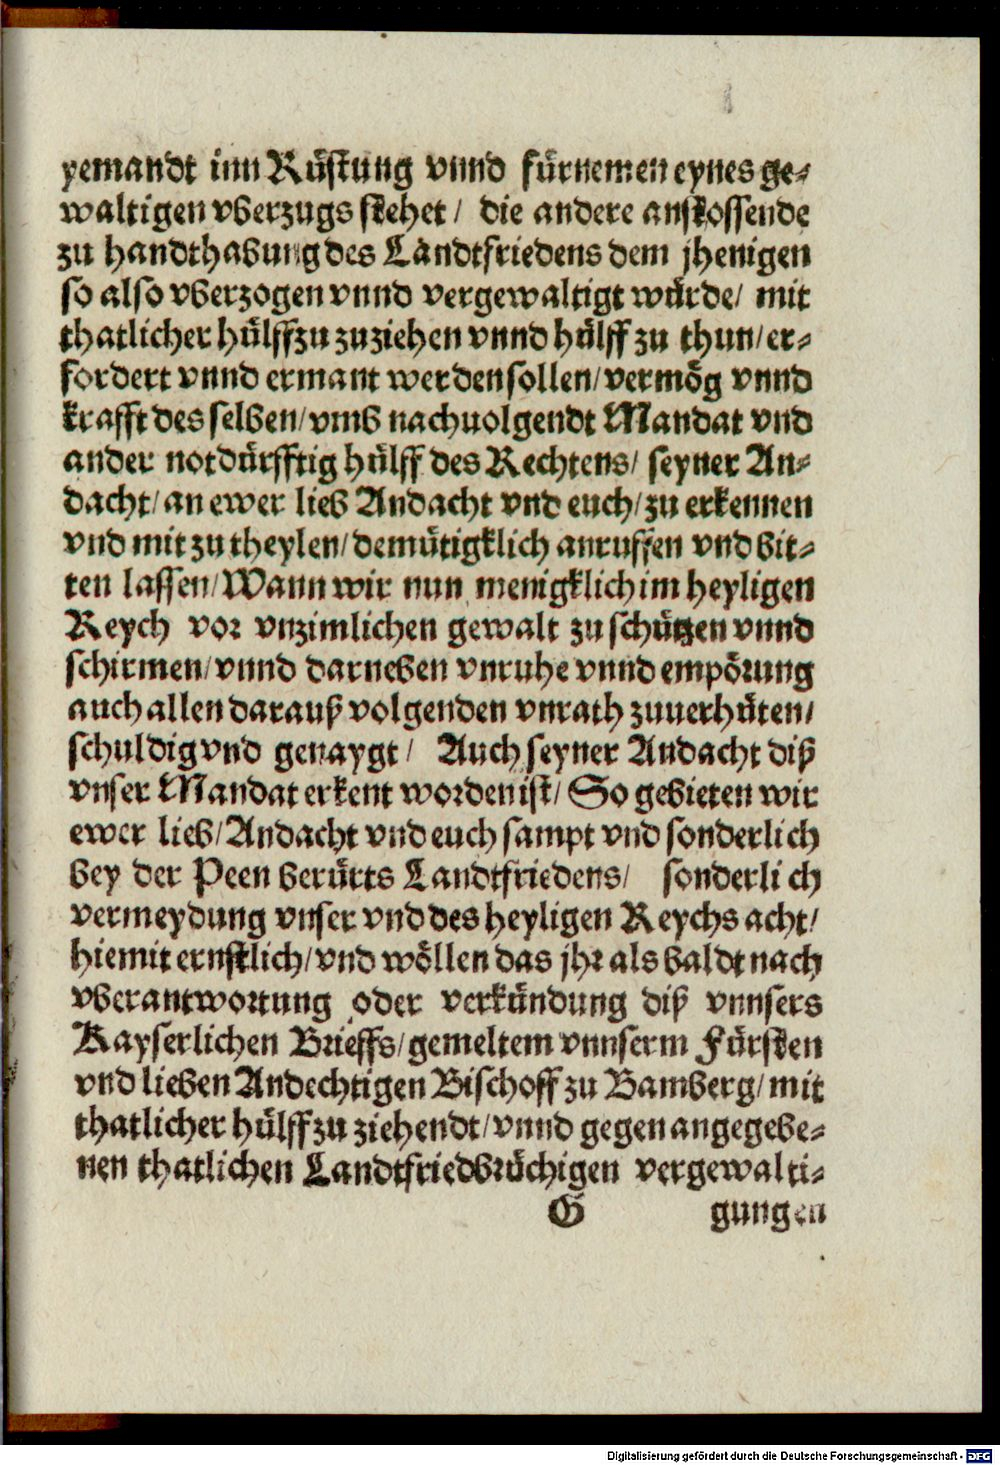 yemandt inn Rüstung vnnd fürnemen eynes ge⸗
waltigen vberzugs stehet / die andere anstossende
zu handthabung des Landtfriedens dem jhenigen
so also vberzogen vnnd vergewaltigt würde / mit
thatlicher hülff zu zuziehen vnnd hülff zu thun / er⸗
fordert vnnd ermant werden sollen / vermög vnnd
krafft des selben / vmb nachuolgendt Mandat vnd
ander notdürfftig hülff des Rechtens / seyner An⸗
dacht / an ewer lieb Andacht vnd euch / zu erkennen
vnd mit zu theylen / demütigklich anruffen vnd bit⸗
ten lassen / Wann wir nun menigklich im heyligen
Reych vor vnzimlichen gewalt zu schützen vnnd
schirmen / vnnd darneben vnruhe vnnd empörung
auch allen darauß volgenden vnrath zuuerhüten /
schuldig vnd genaygt / Auch seyner Andacht diß
vnser Mandat erkent worden ist / So gebieten wir
ewer lieb / Andacht vnd euch sampt vnd sonderlich
bey der Peen berürts Landtfriedens / sonderlich
vermeydung vnser vnd des heyligen Reychs acht /
hiemit ernstlich / vnd wöllen das jhr als baldt nach
vberantwortung oder verkündung diß vnnsers
Kayserlichen Brieffs / gemeltem vnnserm Fürsten
vnd lieben Andechtigen Bischoff zu Bamberg / mit
thatlicher hülff zu ziehendt / vnnd gegen angegebe⸗
nen thatlichen Landtfriedbrüchigen vergewalti⸗
G gungen
Digitalisierung gefördert durch die Deutsche Forschungsgemeinschaft - DFG